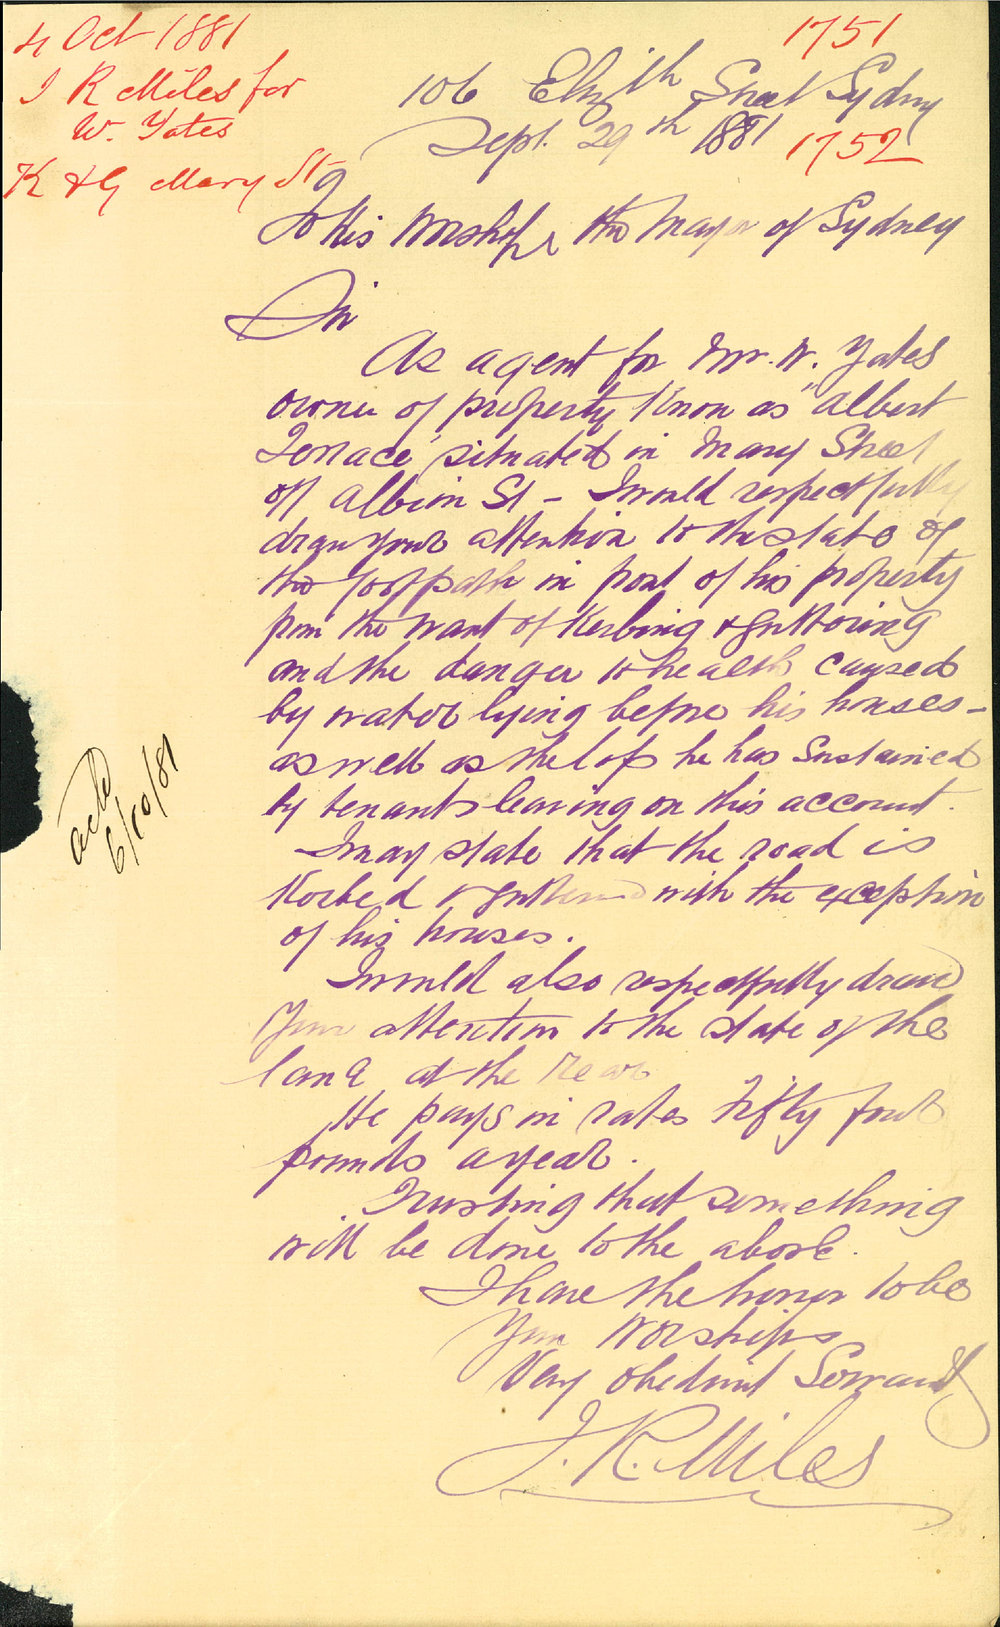 4 Oct 1881
J R Miles for
W. Yates
K & G Mary St
1751
1752
106 Elizth Street Sydney
Sept. 29th 1881
To His Worship, the Mayor of Sydney
Sir
As agent for Mr. W. Yates
owner of property Known as "Albert
Terrace" situated in Mary Street
off Albion St - I would respectfully
draw your attention to the state of
the footpath in front of his property
from the want of Kerbing & guttering
and the danger to health caused
by water lying before his houses -
as well as the loss he has Sustained
by tenants leaving on this account.
I may state that the road is
Kerbed & guttered with the exception
of his houses.
I would also respectfully draw
Your attention to the state of the
lane at the rear
He pays in rates Fifty four
pounds a year.
Trusting that something
will be done to the above.
I have the honor to be
Your Worships
Very obedient Servant
J. R. Miles
6/10/81